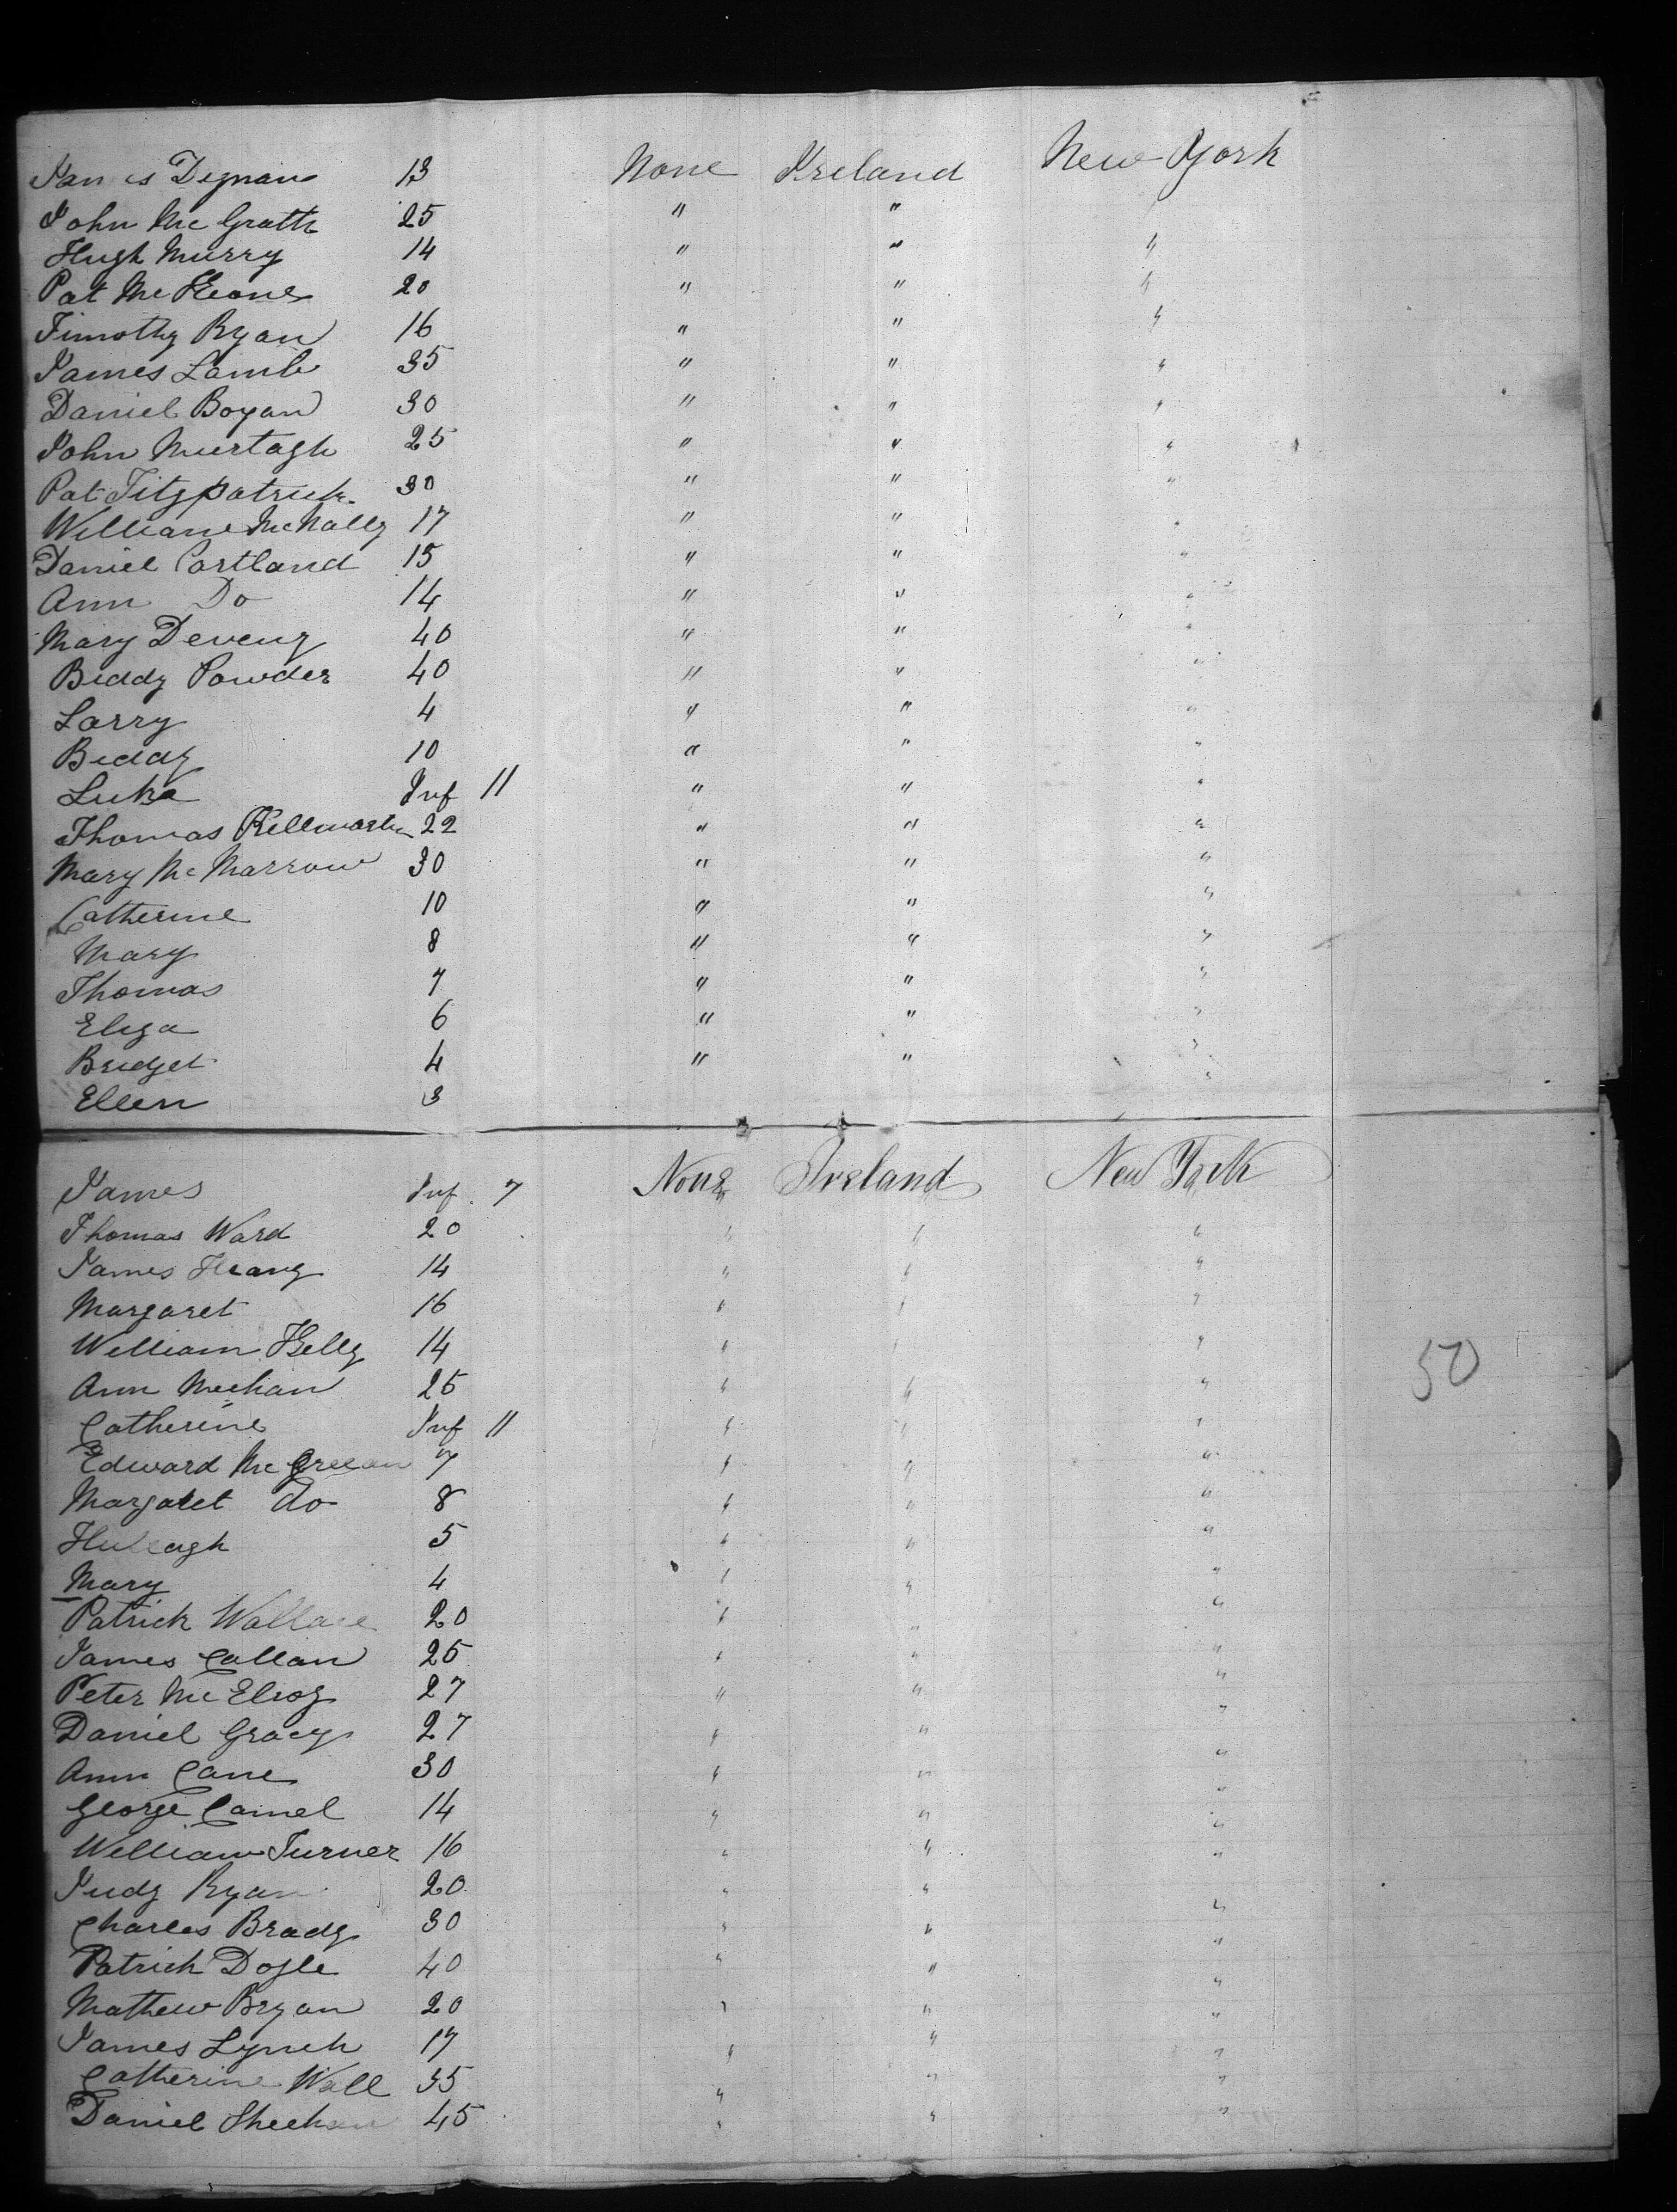 James Dignan 13 None Ireland New York
John McGrath 25 " "
Hugh Murry 14 " " "
Pat McKeone 20 " " "
Timothy Ryan 16 " " "
James Lamb 35 " " "
Daniel Bogan 30 " " "
John Murtagh 25 " " "
Pat Fitzpatrick 30 " " "
William McNally 17 " " "
Daniel Cortland 15 " " "
Ann Do 14 " " "
Mary Deveny 40 " " "
Biddy Powder 40 " " "
Larry 4 " " "
Biddy 10 " " "
Luke Inf 11 " " "
Thomas 22 " " "
Mary McMarrow 30 " " "
Catherine 10 " " "
Mary 8 " " "
Thomas 7 " " "
Eliza 6 " " "
Bridget 4 " " "
Ellen 3 "
James Inf. 7 None Ireland New York
Thomas Ward 20 " " "
James 14 " " "
Margaret 16 " " "
William Kelly 14 " " "
50
Ann Meehan 25 " " "
Catherine Inf 11 " " "
Edward Mc 7 " " "
Margaret do 8 " " "
5 " " "
Mary 4 " " "
Patrick Wallace 20 " " "
James Callan 25 " " "
Peter McElroy 27 " " "
Daniel Gracy 27 " " "
Ann Cane 30 " " "
George Camel 14 " " "
William Turner 16 " " "
Judy Ryan 20 " " "
Charles Brady 30 " " "
Patrick Doyle 40 " " "
Mathew Bryan 20 " " "
James Lynch 17 " " "
Catherine Wall 35 " " "
Daniel Sheehan 45 " " "